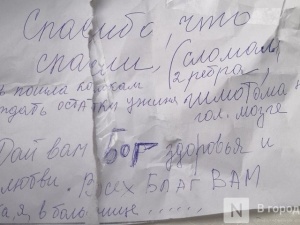 Спасибо, что
спасли, (сломали
2 ребра,
пошла
ждать остатки ужина гиматома
гол. мозга
Дай вам БОГ здоровья и
любви. Всех БЛАГ ВАМ
я, в больнице......
N В город